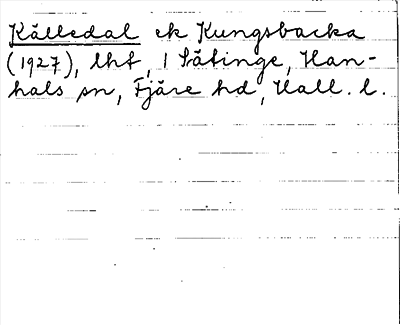 Källedal ek Kungsbacka
(1927), lht, 1 Såtinge, Han-
hals sn, Fjäre hd, Hall. l.